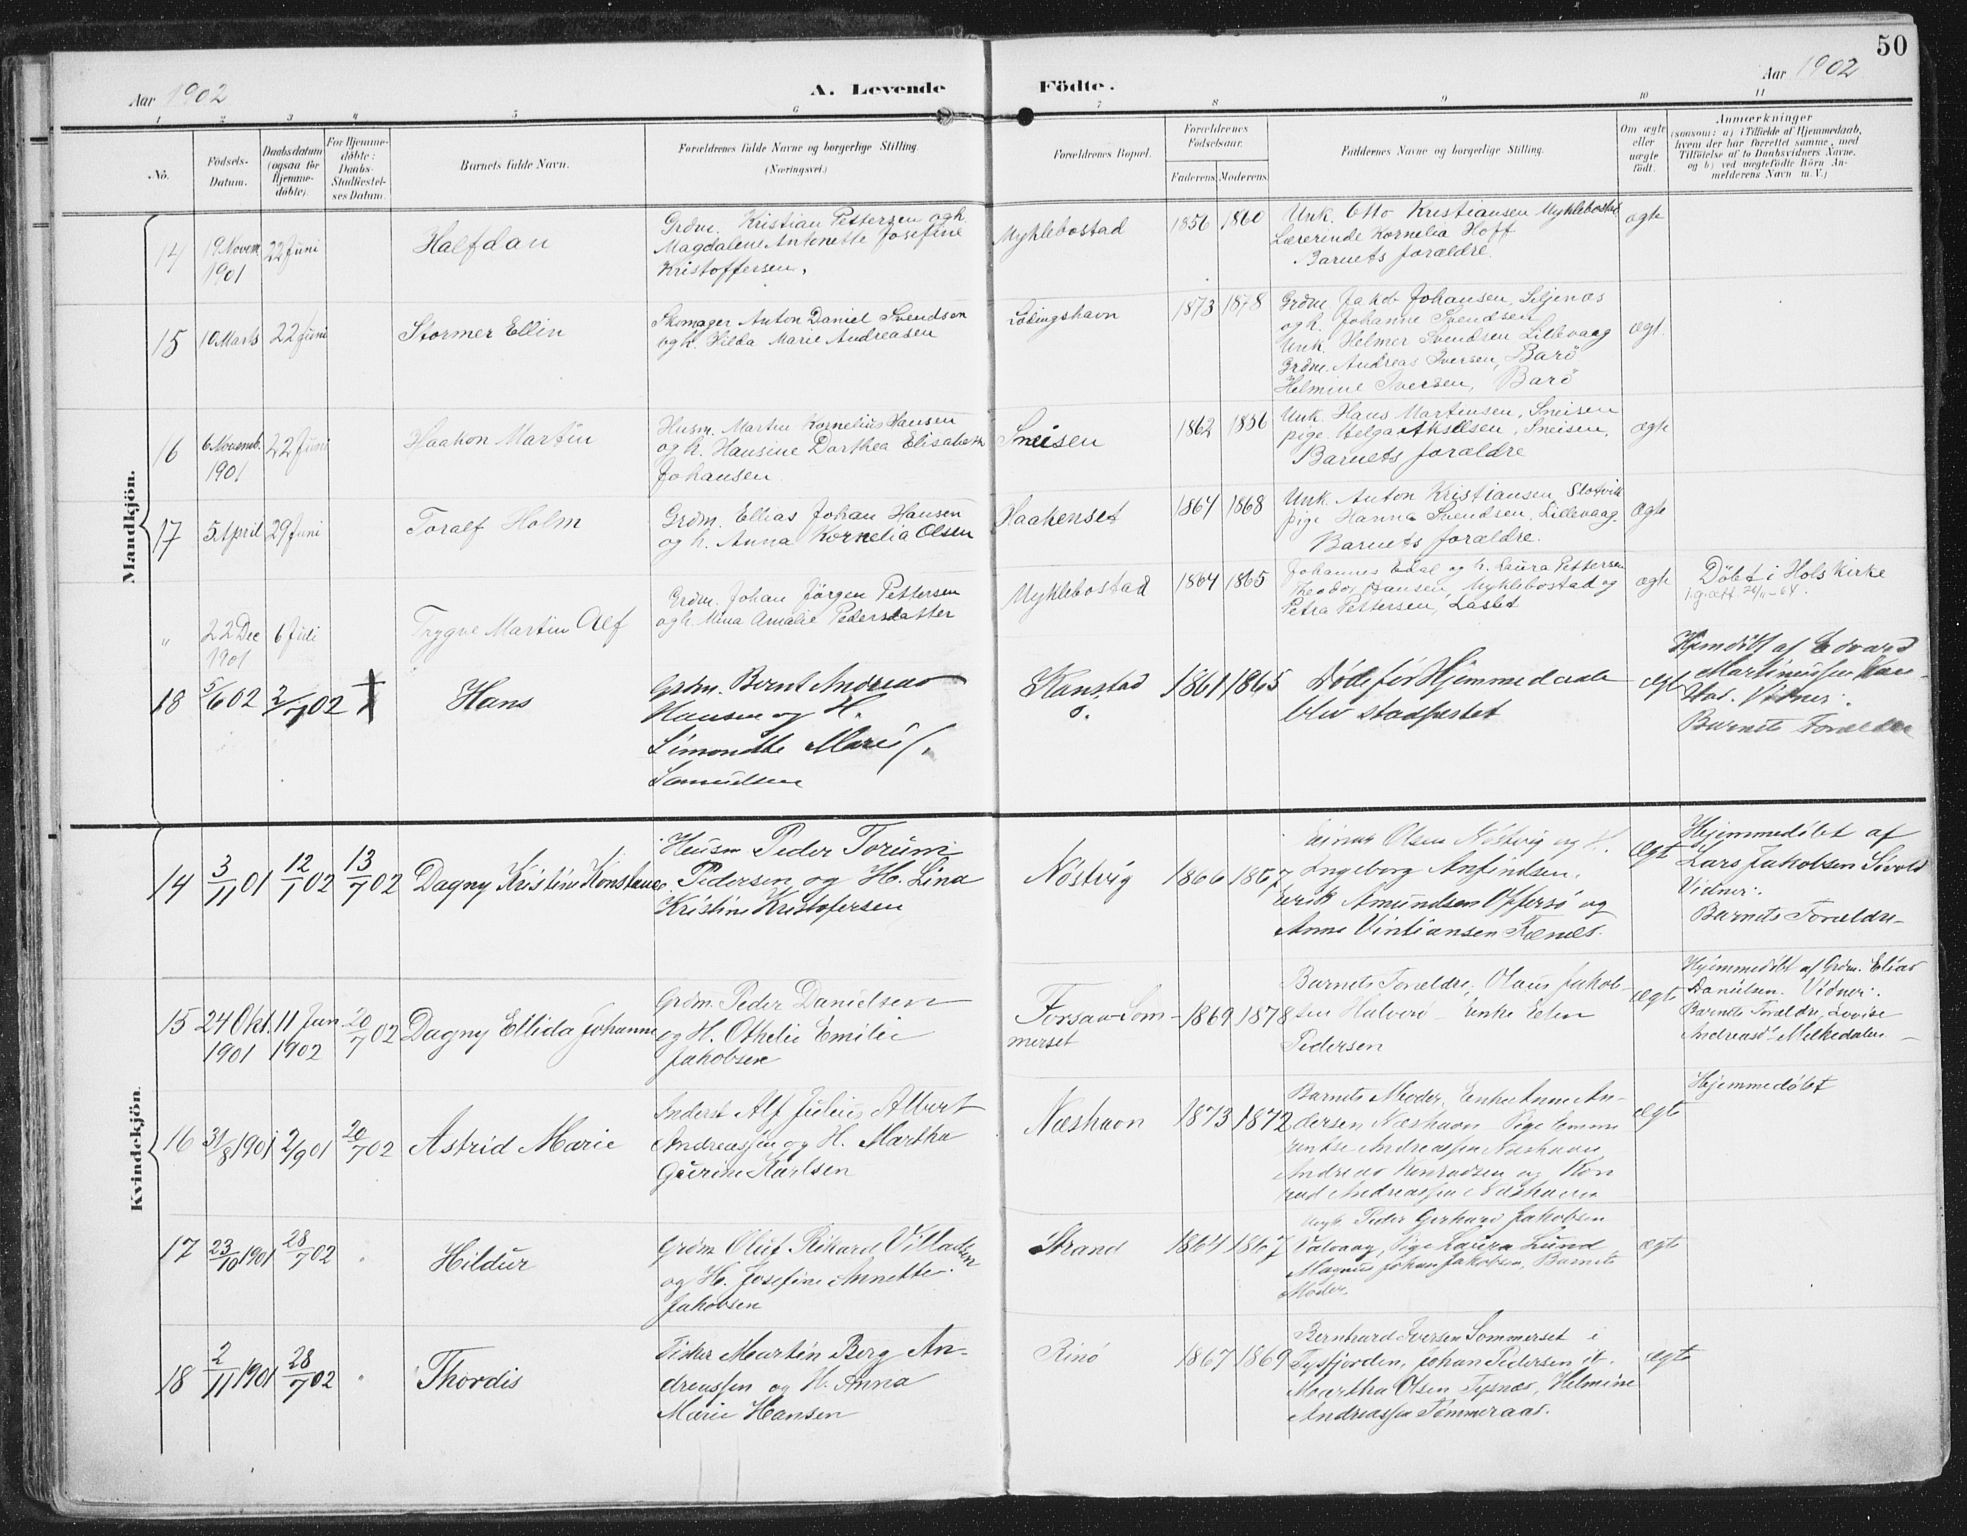 50
Aar 1902
A. Levende Födte.
Aar 1902
1 2 3 4 5 6 7 8 9 10 11
No.
Födsels-
Datum.
Daabsdatum
(ogsaa for
Hjemme-
döbte).
For Hjemme-
döbte:
Daabs-
Stadfæstel-
ses Datum.
Barnets fulde Navn.
Forældrenes fulde Navne og borgerlige Stilling
(Næringsvei.)
Forældrenes Bopæl.
Forældrenes
Födselsaar.
Faderens Moderens
Faddernes Navne og borgerlige Stilling.
Om ægte
eller
uægte
födt.
Anmærkninger
(saasom: a) i Tilfælde af Hjemmedaab,
hvem der har forrettet samme, med
Tilföielse af to Daabsvidners Navne,
og b) ved uægtefödte Börn An-
melderens Navn m. V.)
Mandkjön.
14
19 Novem
1901
22 Juni
Halfdan
Grdm. Kristian Pettersen og h.
Magdalene Antonette Josefine
Kristoffersen.
Myklebostad
1856 1860
Unk. Otto Kristiansen Myklebostad
Lærerinde Kornelia Hoff
Barnets forældre.
ægte
15
10 Marts
22 Juni
Stormer Ellin
Skomager Anton Daniel Svendsen
og h. Hilda Marie Andreasen
Lødingshavn
1873 1878
Grdm. Jakob Johansen, Siljenæs
og h. Johanne Svendsen
Unk. Helmer Svendsen Lillevaag
Grdm. Andreas Iversen, Barö
Helmine Iversen, Barö
ægt.
16
6 Novemb.
1901
22 Juni
Haakon Martin
Husm. Martin Kornelius Hansen
og h. Hansine Dorthea Elisabeth
Johansen
Sneisen
1862 1856
Unk. Hans Martinsen, Sneisen
pige. Helga Akselsen, Sneisen,
Barnets forældre
ægte
17
5 April
29 Juni
Toralf Holm
Grdm. Ellias Johan Hansen
og h. Anna Kornelia Olsen
Haakenset
1864 1868
Unk. Anton Kristiansen, Slotvik
pige Hanna Svendsen, Lillevaag.
Barnets forældre.
ægte
"
22 Dec
1901
6 Juli
Trygve Martin Alf
Grdm. Johan Jörgen Pettersen
og h. Mina Amalie Pedersdatter
Myklebostad
1864 1865
Johannes Edal og h. Laura Pettersen
Theodor Hansen, Myklebostad og
Petra Pettersen,
ægte
Döbt i Hols Kirke
18
5/6 02
2/7 02
Hans
Grdm. Bernt Andreas
Hansen og H.
Simondte Marie
Samuelsen
Kanstad
o.
1861 1865
Döde før Hjemmedaab
blev stadfestet
ægt
Hjemdöbt af Edvard
Martinussen Kan-
stad. Vidner:
Barnets Forældre
Kvindekjön.
14
3/11 01
12/1 02
13/7 02
Dagny Kristine Konstance
Husm Peder Torum
Pedersen og H. Lina
Kristine Kristofersen
Nöstvig
1866 1867
Einar Olsen Nöstvig og H.
Ingeborg Anfindsen,
Erik Amundsen Offersö og
Anne Vintiansen Kænes.
ægt
Hjemmedöbt af
Lars Jakobsen
Vidner:
Barnets Forældre
15
24 Okt.
1901
11 Jan
1902
20/7 02
Dagny Ellida Johanne
Grdm. Peder Danielsen
og H. Othelie Emilie
Jakobsen
Forsaa-Som-
merset
1869 1878
Barnets Forældre, Olaus Jakob-
sen Halverö Enke Elen
Pedersen
ægte
Hjemmedöbt af Grdm. Elias
Danielsen. Vidner:
Barnets Forældre, Lovise
Andreasd. Melkedalen
16
31/8 1901
2/9 01
20/7 02
Astrid Marie
Inderst Alf Julius Albert
Andreassen og H. Martha
Gurine Karlsen
Næshavn
1873 1872
Barnets Moder, Enke Anne An-
dersen Næshavn Pige Emma
Andreassen Næshavn,
Andreas Konradsen og Kon
rad Andreassen Næshavn
ægte
Hjemmedöbt
17
23/10 1901
28/7 02
"
Hildur
Grdm Oluf Rikard Villadsen
og H. Josefine Annette
Jakobsen
Strand
1864 1867
Ungk. Peder Gerhard Jakobsen
Valvaag, Pige Laura Lund
Magnus Johan Jakobsen, Barnets
Moder,
ægte
18
2/11 1901
28/7 02
"
Thordis
Fisker Martin Berg An-
dreassen og H. Anna
Marie Hansen
Rinö
1867 1869
Bernhard Iversen Sommerset i
Tysfjorden, Johan Pedersen it.
Martha Olsen Tysnæs, Helmine
Andreassen Tömmeraas.
ægte